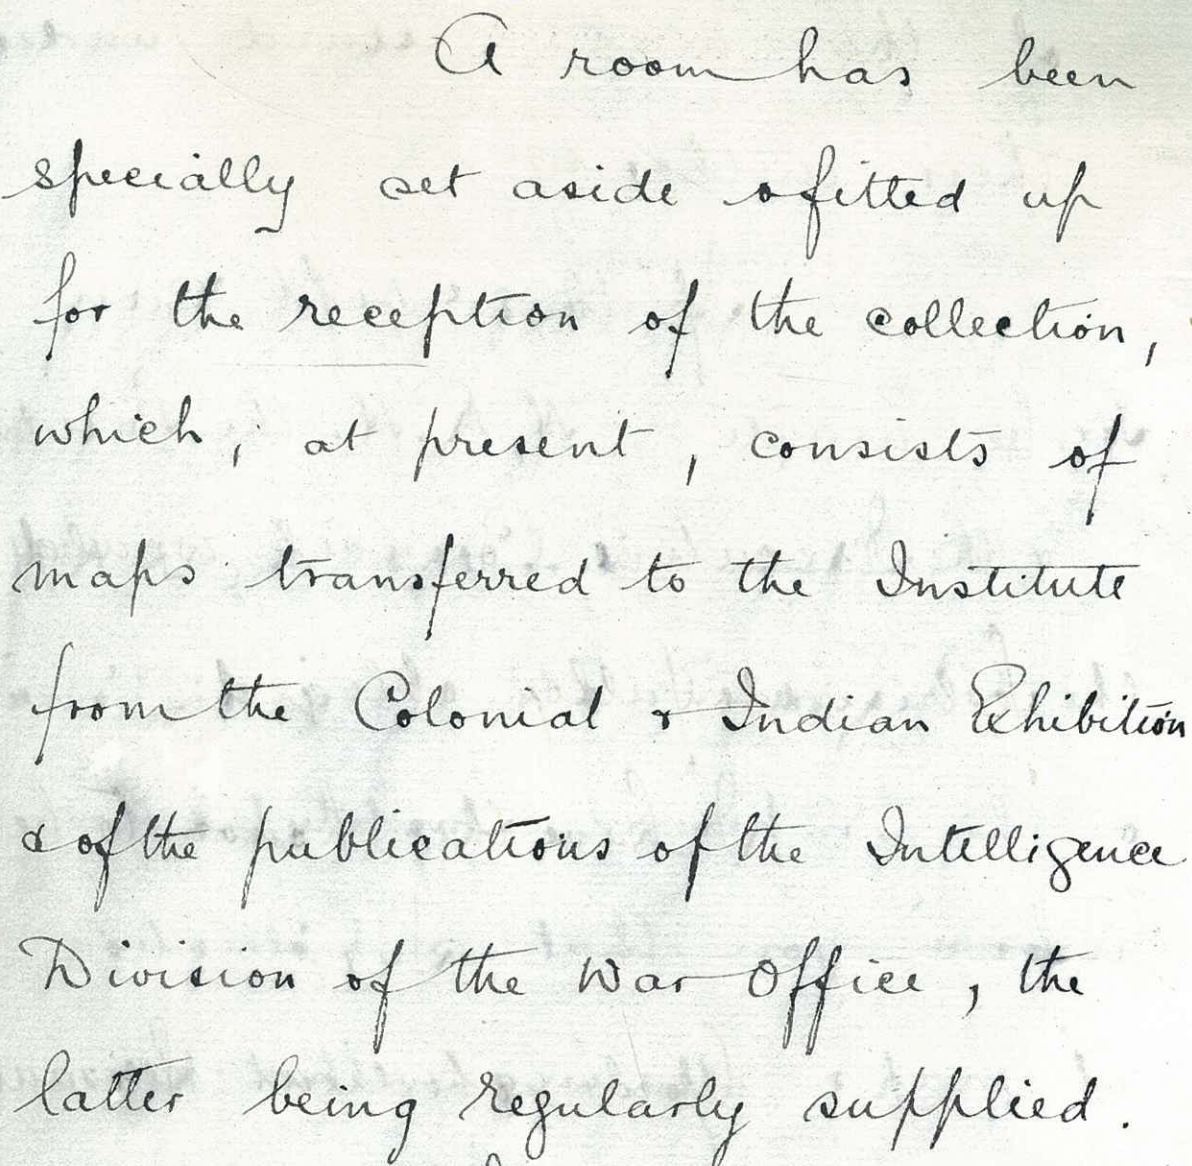 A room has been
specially set aside & fitted up
for the reception of the collection,
which, at present, consists of
maps transferred to the Institute
from the Colonial & Indian Exhibition
& of the publications of the Intelligence
Division of the War Office, the
latter being regularly supplied.